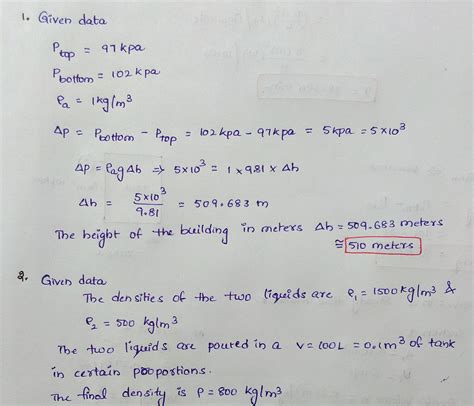 1. Given data
P_top = 97kpa
P_bottom = 102kpa
ρ_a = 1kg/m³
ΔP = P_bottom - P_top = 102kpa - 97kpa = 5kpa = 5×10³
ΔP = ρ_a g Δh ⇒ 5×10³ = 1 × 9.81 × Δh
Δh = 5×10³ / 9.81 = 509.683 m
The height of the building in meters Δh = 509.683 meters
≅ 510 meters
2. Given data
The densities of the two liquids are ρ₁ = 1500kg/m³ &
ρ₂ = 500 kg/m³
The two liquids are poured in a V=100L = 0.1m³ of tank
in certain propostions.
The final density is ρ = 800 kg/m³